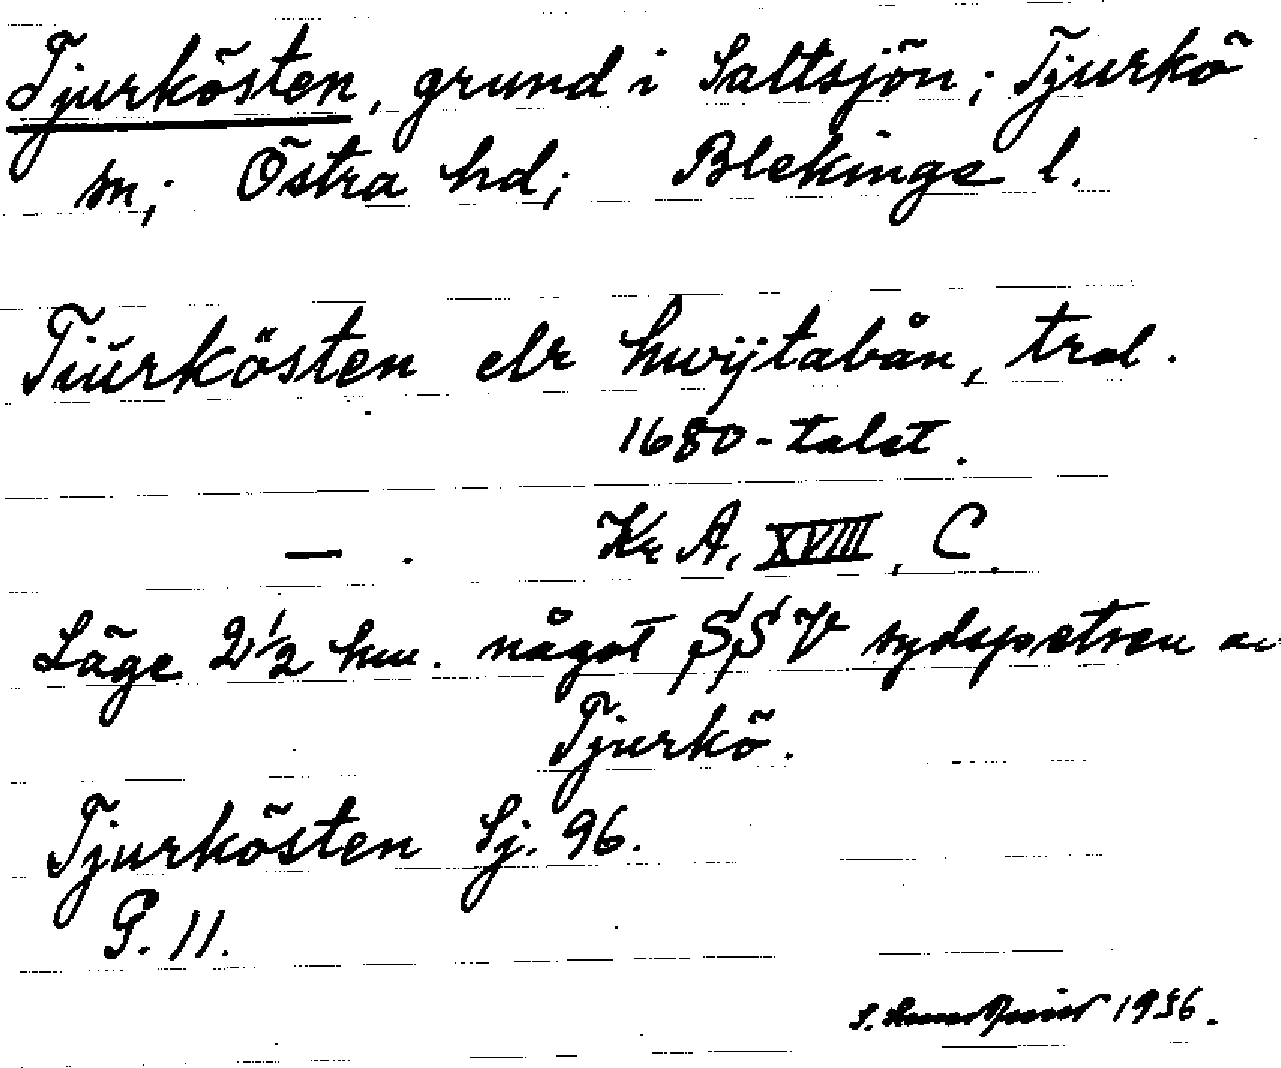 Tjurkösten, grund i Saltsjön; Tjurkö
sn; Östra hd; Blekinge l.
Tiŭrkösten elr hwijtabån, trol.
1680-talet.
— . Kr A, XVIII, C.
Läge 2 1/2 km. något SSV sydspetsen av
Tjurkö.
Tjurkösten Sj. 96.
G. 11.
S. 1936.